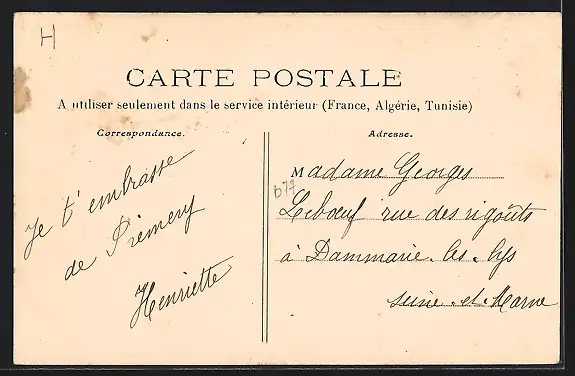 H
CARTE POSTALE
A utiliser seulement dans le service intérieur (France, Algérie, Tunisie)
Correspondance.
Je t'embrasse
de Prémery
Henriette
Adresse.
Madame Georges
Leboeuf rue des rigoûts
à Dammarie-les-lys
seine-et-Marne
b77